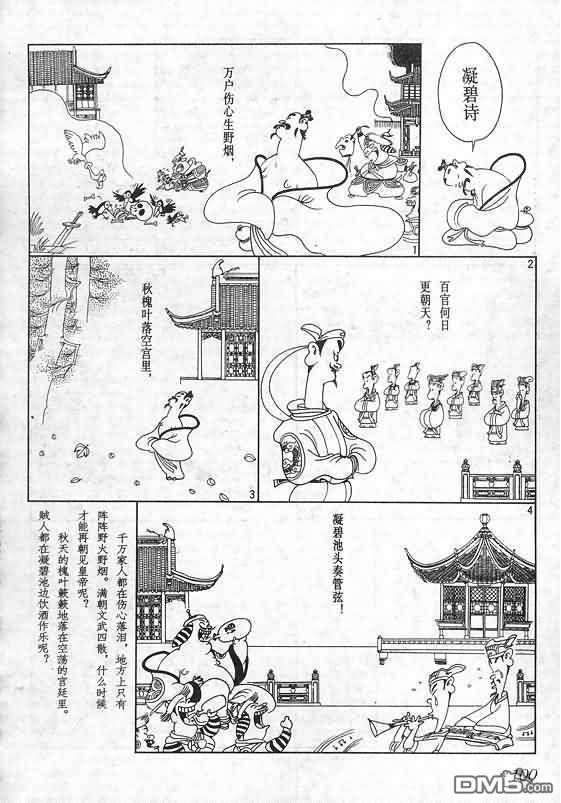 凝碧诗
万户伤心生野烟,
1
2
百官何日
更朝天?
秋槐叶落空宫里,
3
4
凝碧池头奏管弦!
千万家人都在伤心落泪,地方上只有
阵阵野火野烟。满朝文武四散,什么时候
才能再朝见皇帝呢?
秋天的槐叶簌簌地落在空荡的宫廷里。
贼人都在凝碧池边饮酒作乐呢?
100
DM5.com